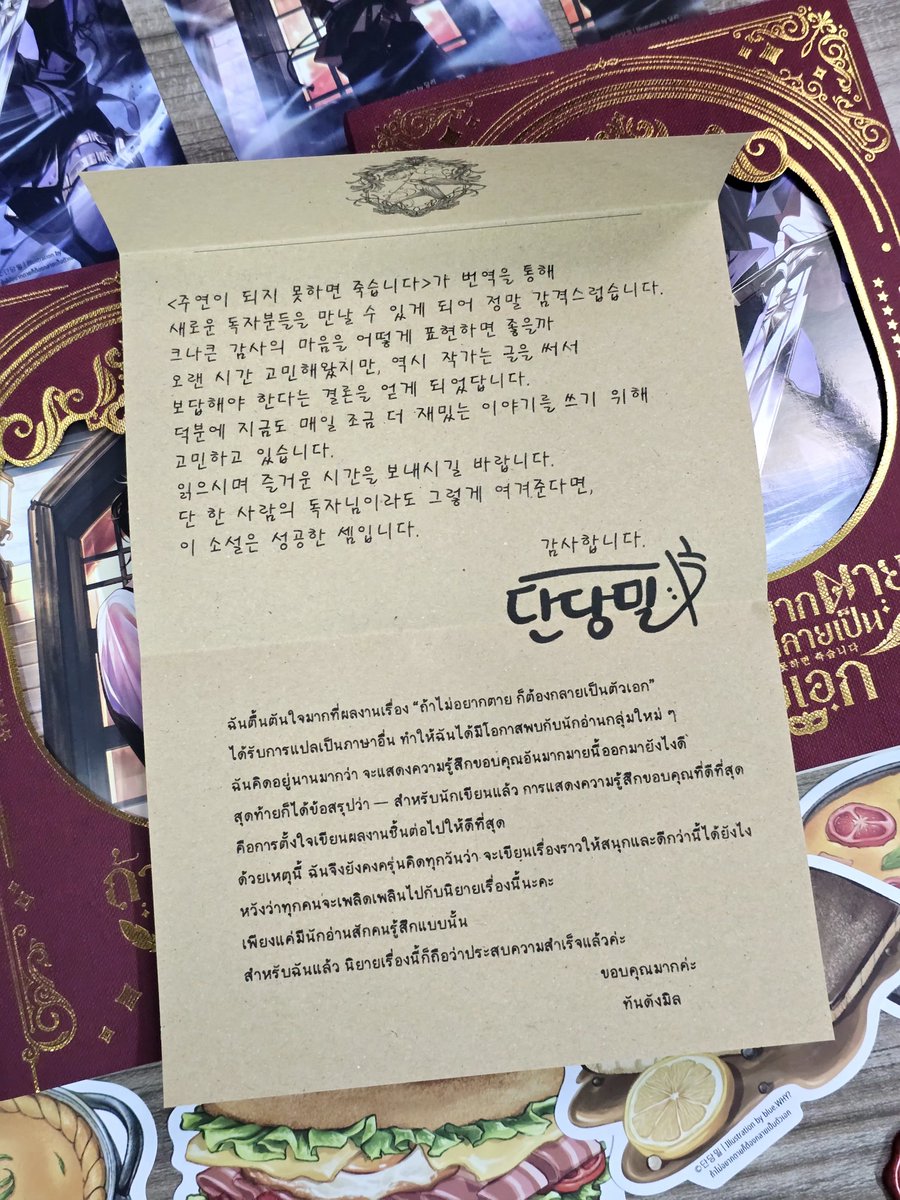 <주연이 되지 못하면 죽습니다>가 번역을 통해
새로운 독자분들을 만날 수 있게 되어 정말 감격스럽습니다.
크나큰 감사의 마음을 어떻게 표현하면 좋을까
오랜 시간 고민해왔지만, 역시 작가는 글을 써서
보답해야 한다는 결론을 얻게 되었답니다.
덕분에 지금도 매일 조금 더 재밌는 이야기를 쓰기 위해
고민하고 있습니다.
읽으시며 즐거운 시간을 보내시길 바랍니다.
단 한 사람의 독자님이라도 그렇게 여겨준다면,
이 소설은 성공한 셈입니다.
감사합니다.
단당밀
ฉันตื้นตันใจมากที่ผลงานเรื่อง “ถ้าไม่อยากตาย ก็ต้องกลายเป็นตัวเอก”
ได้รับการแปลเป็นภาษาอื่น ทำให้ฉันได้มีโอกาสพบกับนักอ่านกลุ่มใหม่ ๆ
ฉันคิดอยู่นานมากว่า จะแสดงความรู้สึกขอบคุณอันมากมายนี้ออกมายังไงดี
สุดท้ายก็ได้ข้อสรุปว่า — สำหรับนักเขียนแล้ว การแสดงความรู้สึกขอบคุณที่ดีที่สุด
คือการตั้งใจเขียนผลงานชิ้นต่อไปให้ดีที่สุด
ด้วยเหตุนี้ ฉันจึงยังคงครุ่นคิดทุกวันว่า จะเขียนเรื่องราวให้สนุกและดีกว่านี้ได้ยังไง
หวังว่าทุกคนจะเพลิดเพลินไปกับนิยายเรื่องนี้นะคะ
เพียงแค่มีนักอ่านสักคนรู้สึกแบบนั้น
สำหรับฉันแล้ว นิยายเรื่องนี้ก็ถือว่าประสบความสำเร็จแล้วค่ะ
ขอบคุณมากค่ะ
ทันดังมิล
©단당밀 | Illustration by blue.WHY?
ถ้าไม่อยากตายก็ต้องกลายเป็นตัวเอก